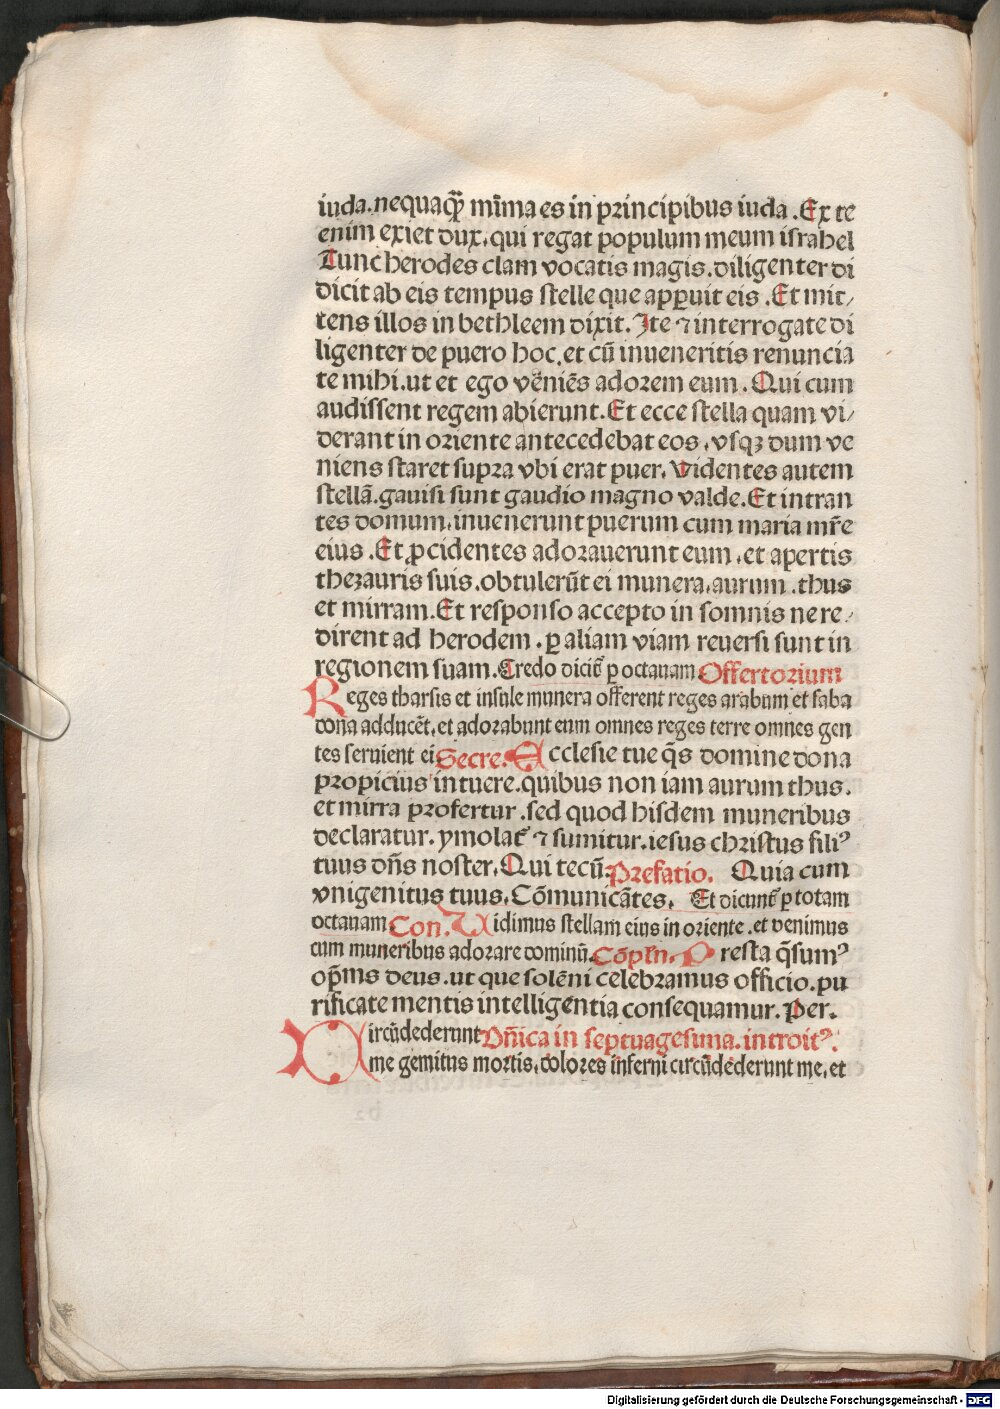 iuda. nequaq̃ mĩma es in principibus iuda. Ex te
enim exiet dux, qui regat populum meum israhel
Tunc herodes clam vocatis magis. diligenter di
dicit ab eis tempus stelle que apꝑuit eis. Et mit/
tens illos in bethleem dixit. Ite ⁊ interrogate di
ligenter de puero hoc, et cũ inueneritis renuncia
te mihi. ut et ego vẽniẽs adorem eum. Qui cum
audissent regem abierunt. Et ecce stella quam vi/
derant in oriente antecedebat eos, vsqꝫ dum ve
niens staret supra vbi erat puer. Videntes autem
stellã. gauisi sunt gaudio magno valde. Et intran
tes domum, inuenerunt puerum cum maria mr̃e
eius. Et ꝓcidentes adorauerunt eum, et apertis
thezauris suis. obtulerũt ei munera, aurum. thus
et mirram. Et responso accepto in somnis ne re/
dirent ad herodem. ꝑ aliam viam reuersi sunt in
regionem suam. Credo dicit̃ ꝑ octauam Offertorium
Reges tharsis et insule munera offerent reges arabum et saba
dona adducẽt, et adorabunt eum omnes reges terre omnes gen
tes seruient ei Secre. Ecclesie tue q̃s domine dona
propicius intuere. quibus non iam aurum thus.
et mirra profertur. sed quod hisdem muneribus
declaratur. ymolat̃ ⁊ sumitur. iesus christus filiꝰ
tuus dñs noster. Qui tecũ. Prefatio. Quia cum
vnigenitus tuus. Cõmunicãtes. Et dicunt̃ ꝑ totam
octauam Con. Vidimus stellam eius in oriente. et venimus
cum muneribus adorare dominũ. Cõpln̄. Presta q̃sumꝰ
opm̃s deus. ut que solẽni celebramus officio. pu
rificate mentis intelligentia consequamur. Per.
Circũdederunt Dñica in septuagesima. introitꝰ.
me gemitus mortis, dolores inferni circũdederunt me, et
Digitalisierung gefördert durch die Deutsche Forschungsgemeinschaft - DFG